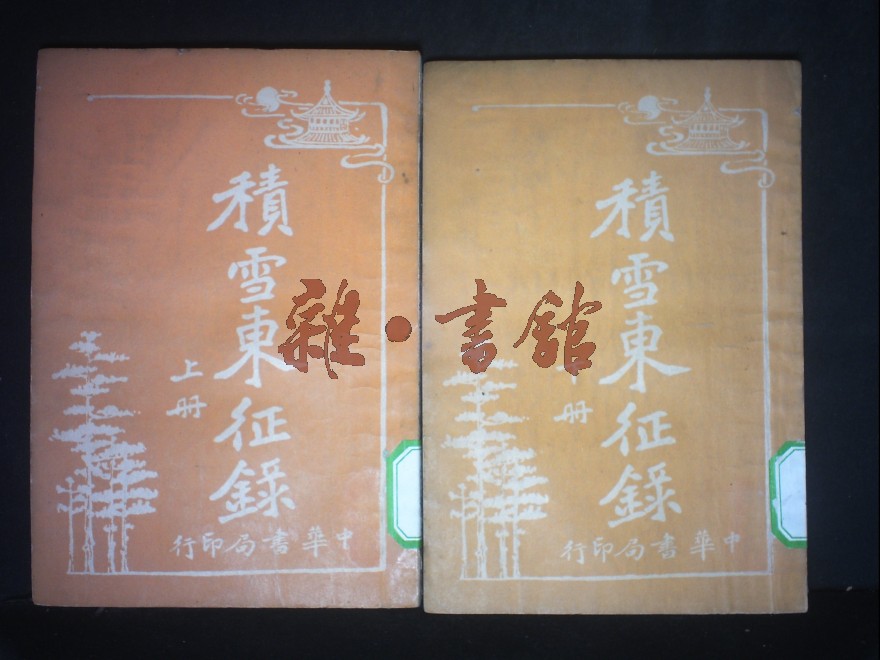 積雪東征錄
上册
中華書局印行
積雪東征錄
册
中華書局印行
雜·書館